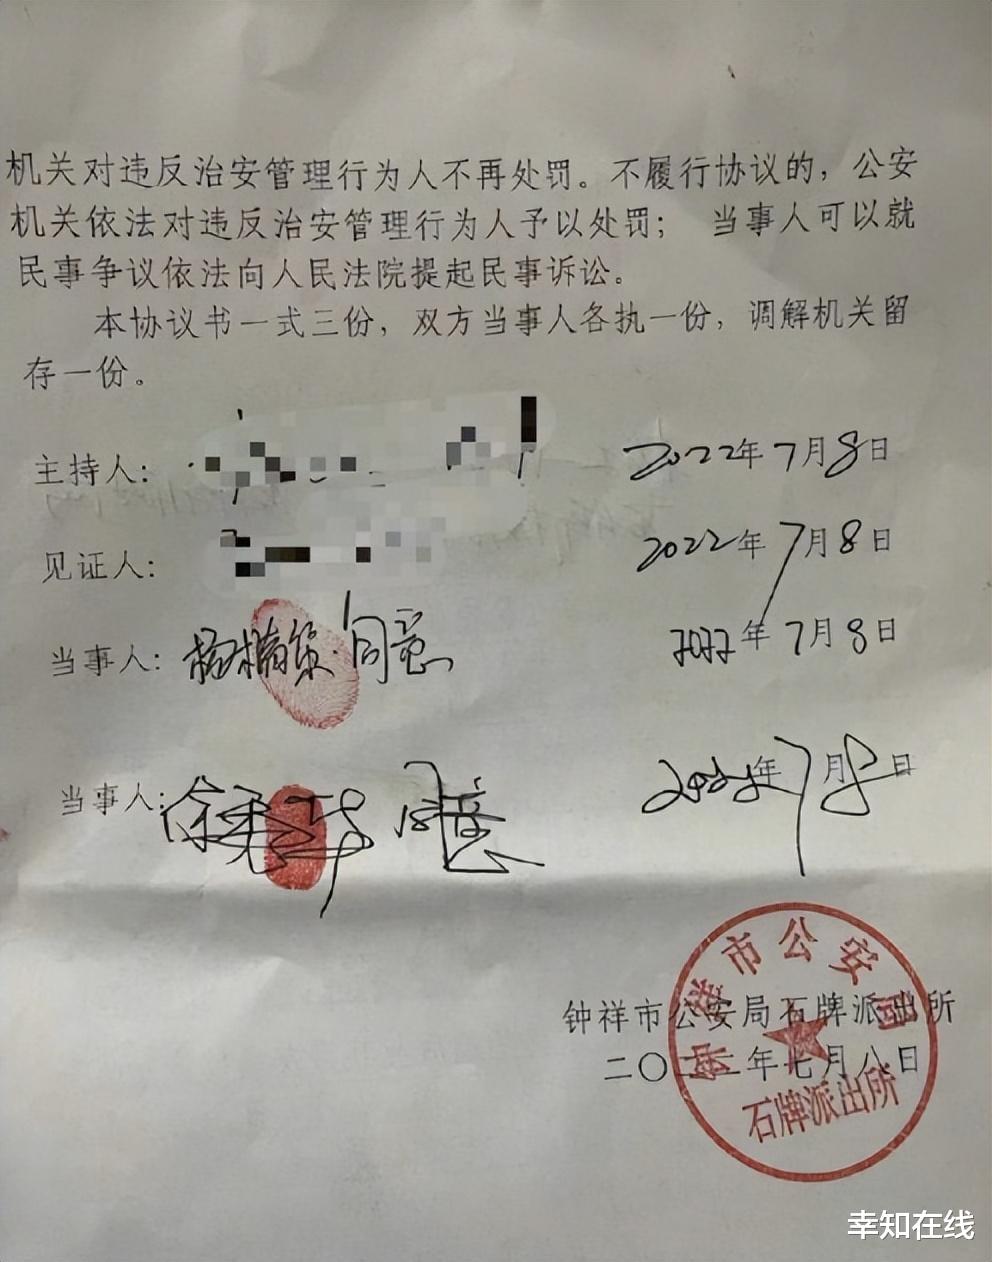 机关对违反治安管理行为人不再处罚。不履行协议的，公安
机关依法对违反治安管理行为人予以处罚； 当事人可以就
民事争议依法向人民法院提起民事诉讼。
本协议书一式三份，双方当事人各执一份，调解机关留
存一份。
主持人： 2022年7月8日
见证人： 2022年7月8日
当事人：杨楠策 同意 2022年7月8日
当事人： 同意 2022年7月8日
钟祥市公安局石牌派出所
二〇二二年七月八日
钟祥市公安局
石牌派出所
幸知在线